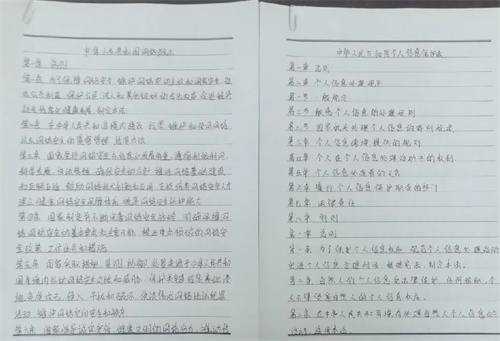 中华人民共和国网络安全法
第一章 总则
第一条 为了保障网络安全，维护网络空间主权和国家安全、社
会公共利益，保护公民、法人和其他组织的合法权益，促进经济
社会信息化健康发展，制定本法。
第二条 在中华人民共和国境内建设、运营、维护和使用网络，
以及网络安全的监督管理，适用本法。
第三条 国家坚持网络安全与信息化发展并重，遵循积极利用、
科学发展、依法管理、确保安全的方针，推进网络基础设施建设
和互联互通，鼓励网络技术创新和应用，支持培养网络安全人才
建立健全网络安全保障体系，提高网络安全保护能力
第四条 国家制定并不断完善网络安全战略，明确保障网
络安全的基本要求和主要目标，提出重点领域的网络安
全政策、工作任务和措施。
第五条 国家采取措施，监测、防御、处置来源于中华人民共和
国境内外的网络安全风险和威胁，保护关键信息基础设
施免受攻击、侵入、干扰和破坏，依法惩治网络违法犯罪
活动，维护网络空间安全和秩序
第六条 国家倡导诚实守信、健康文明的网络行为，推动传
中华人民共和国个人信息保护法
第一章 总则
第二章 个人信息处理规则
第一节 一般规定
第二节 敏感个人信息的处理规则
第三节 国家机关处理个人信息的特别规定
第三章 个人信息跨境提供的规则
第四章 个人在个人信息处理活动中的权利
第五章 个人信息处理者的义务
第六章 履行个人信息保护职责的部门
第七章 法律责任
第八章 附则
第一章 总则
第一条 为了保护个人信息权益，规范个人信息处理活动
促进个人信息合理利用，根据宪法，制定本法。
第二条 自然人的个人信息受法律保护，任何组织、个
人不得侵害自然人的个人信息权益。
第三条 在中华人民共和国境内处理自然人个人信息的
活动，适用本法。